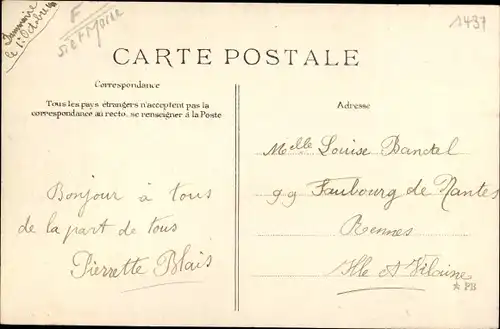 le 1er Octobre
F
S et Marne
1437
CARTE POSTALE
Correspondance
Tous les pays étrangers n'acceptent pas la
correspondance au recto, se renseigner à la Poste
Bonjour à tous
de la part de tous
Pierrette Blais
Adresse
Melle Louise Banctel
99 Faubourg de Nantes
Rennes
Ille et Vilaine
★ PB